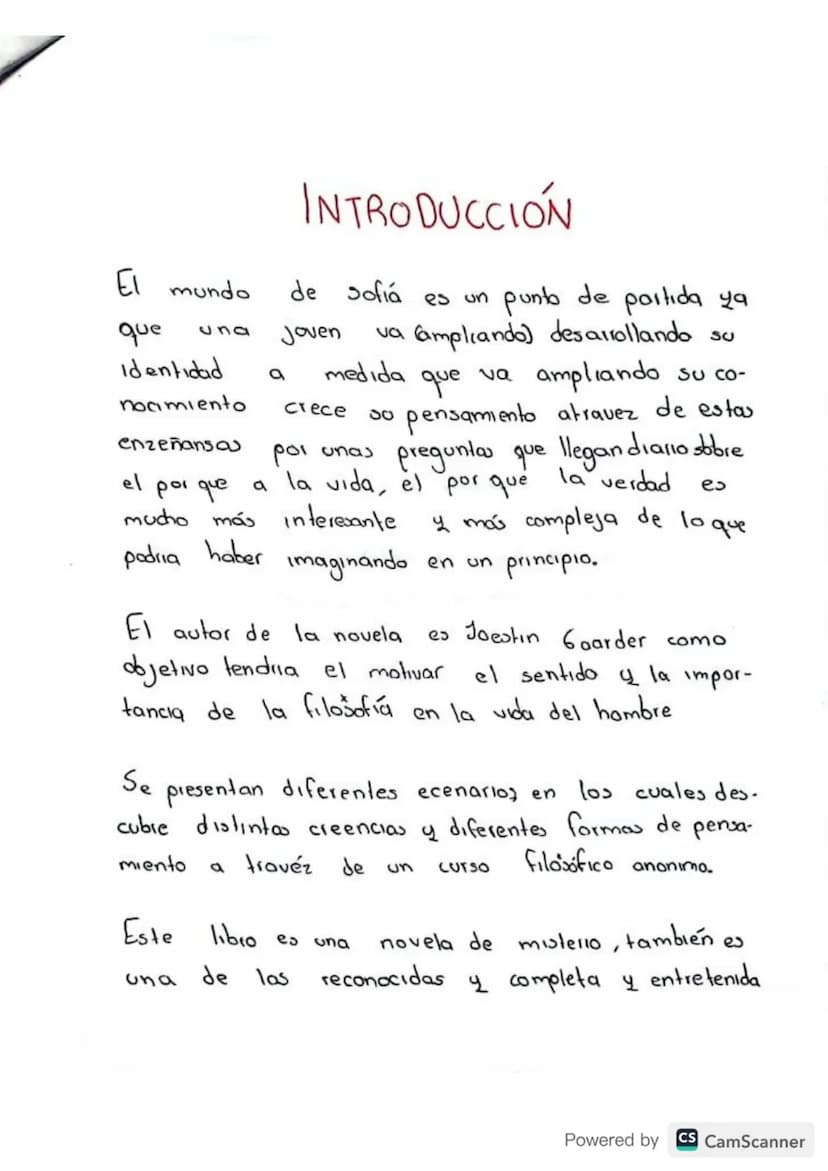 INTRODUCCIÓN
El mundo de sofiá es un punto de partida ya
que una joven va (ampliando) desarollando su
identidad a medida que va ampliando su co-
nocimiento crece so pensamiento atravez de estas
enzeñansas por unas preguntas que llegan diario sobre
el por que a la vida, el por que la verdad es
mucho más interesante y más compleja de lo que
podria haber imaginando en un principio.
El autor de la novela es Joestin Gaarder como
objetivo tendria el motivar el sentido y la impor-
tancia de la filosofía en la vida del hombre
Se presentan diferentes ecenarios en los cuales des-
cubre distintas creencias y diferentes formas de pensa-
miento a travéz de un curso filósofico anonimo.
Este libro es una novela de misterio, también es
una de las reconocidas y completa y entretenida
Powered by CS CamScanner